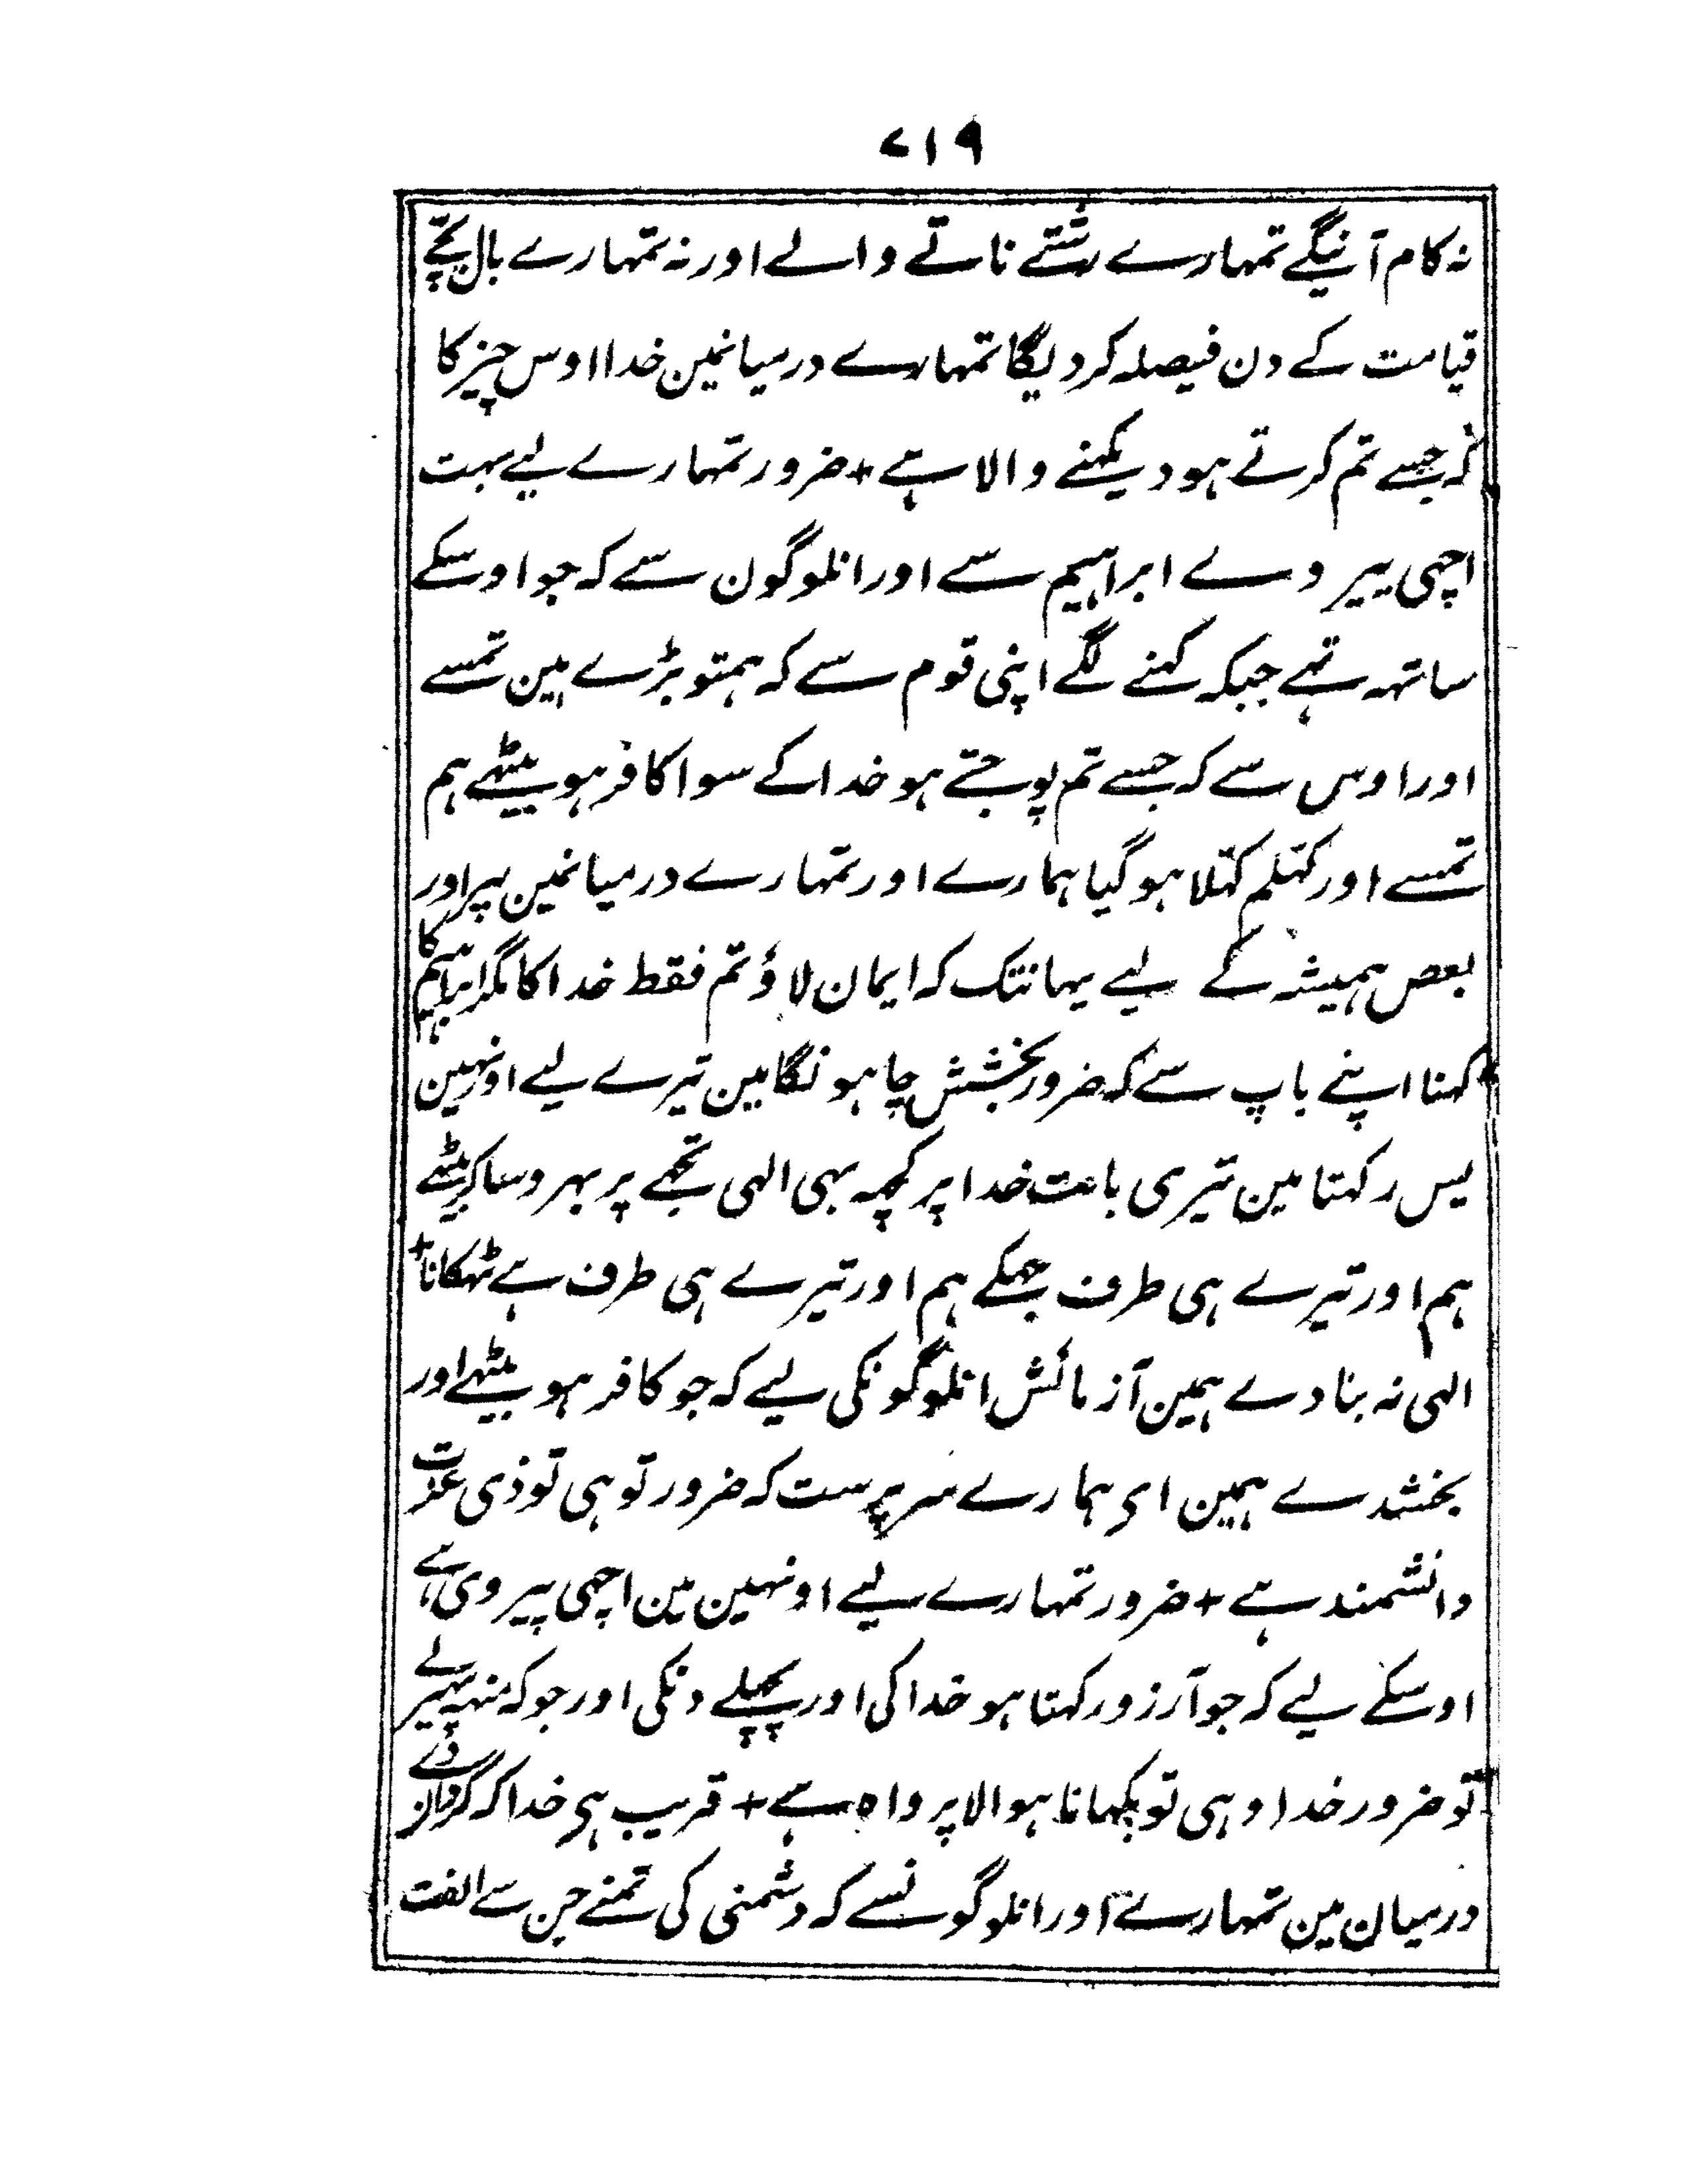 ۷۱۹
نہ کام آئینگے تمہارے رشتے ناتے والے اور نہ تمہارے بال بچے
قیامت کے دن فیصلہ کر دیگا تمہارے درمیانمین خدا اوس چیز کا
کہ جسے تم کرتے ہو دیکہنے والا ہے + ضرور تمہارے لیے بہت
اچہی پیروے ابراہیم سے اور انلوگون سے کہ جو اوسکے
ساتہہ تہے جبکہ کہنے لگے اپنی قوم سے کہ ہمتو بڑے ہین تمسے
اور اوس سے کہ جسے تم پوجتے ہو خدا کے سوا کافر ہو بیٹہے ہم
تمسے اور کہتلم کہتلا ہو گیا ہمارے اور تمہارے درمیانمین بیر اور
بعض ہمیشہ کے لیے یہانتک کہ ایمان لاؤ تم فقط خدا کا مگر ابراہیم کا
کہنا اپنے باپ سے کہ ضرور بخشش چاہونگا مین تیرے لیے اور نہین
بس رکہتا مین تیری بابت خدا پر کچہہ بہی الہی تجہے پر بہروسا کر بیٹہے
ہم اور تیرے ہی طرف جہکے ہم اور تیرے ہی طرف ہے ٹہکانا +
الہی نہ بنا دے ہمین آزمائش انلوگونکی لیے کہ جو کافر ہو بیٹہے اور
بخشدے ہمین ای ہمارے سرپرست کہ ضرور تو ہی تو ذی عزت
دانشمند ہے + ضرور تمہارے لیے اونہین مین اچہی پیروی ہے
اوسکے لیے کہ جو آرزو رکہتا ہو خدا کی اور پچہلے دنکی اور جو کہ منہہ پہیر لے
تو ضرور خدا وہی تو بکہانا ہوا لاپرواہ ہے + قریب ہی خدا کہ گردان دے
درمیان مین تمہارے اور انلوگونسے کہ دشمنی کی تمنے جن سے الفت